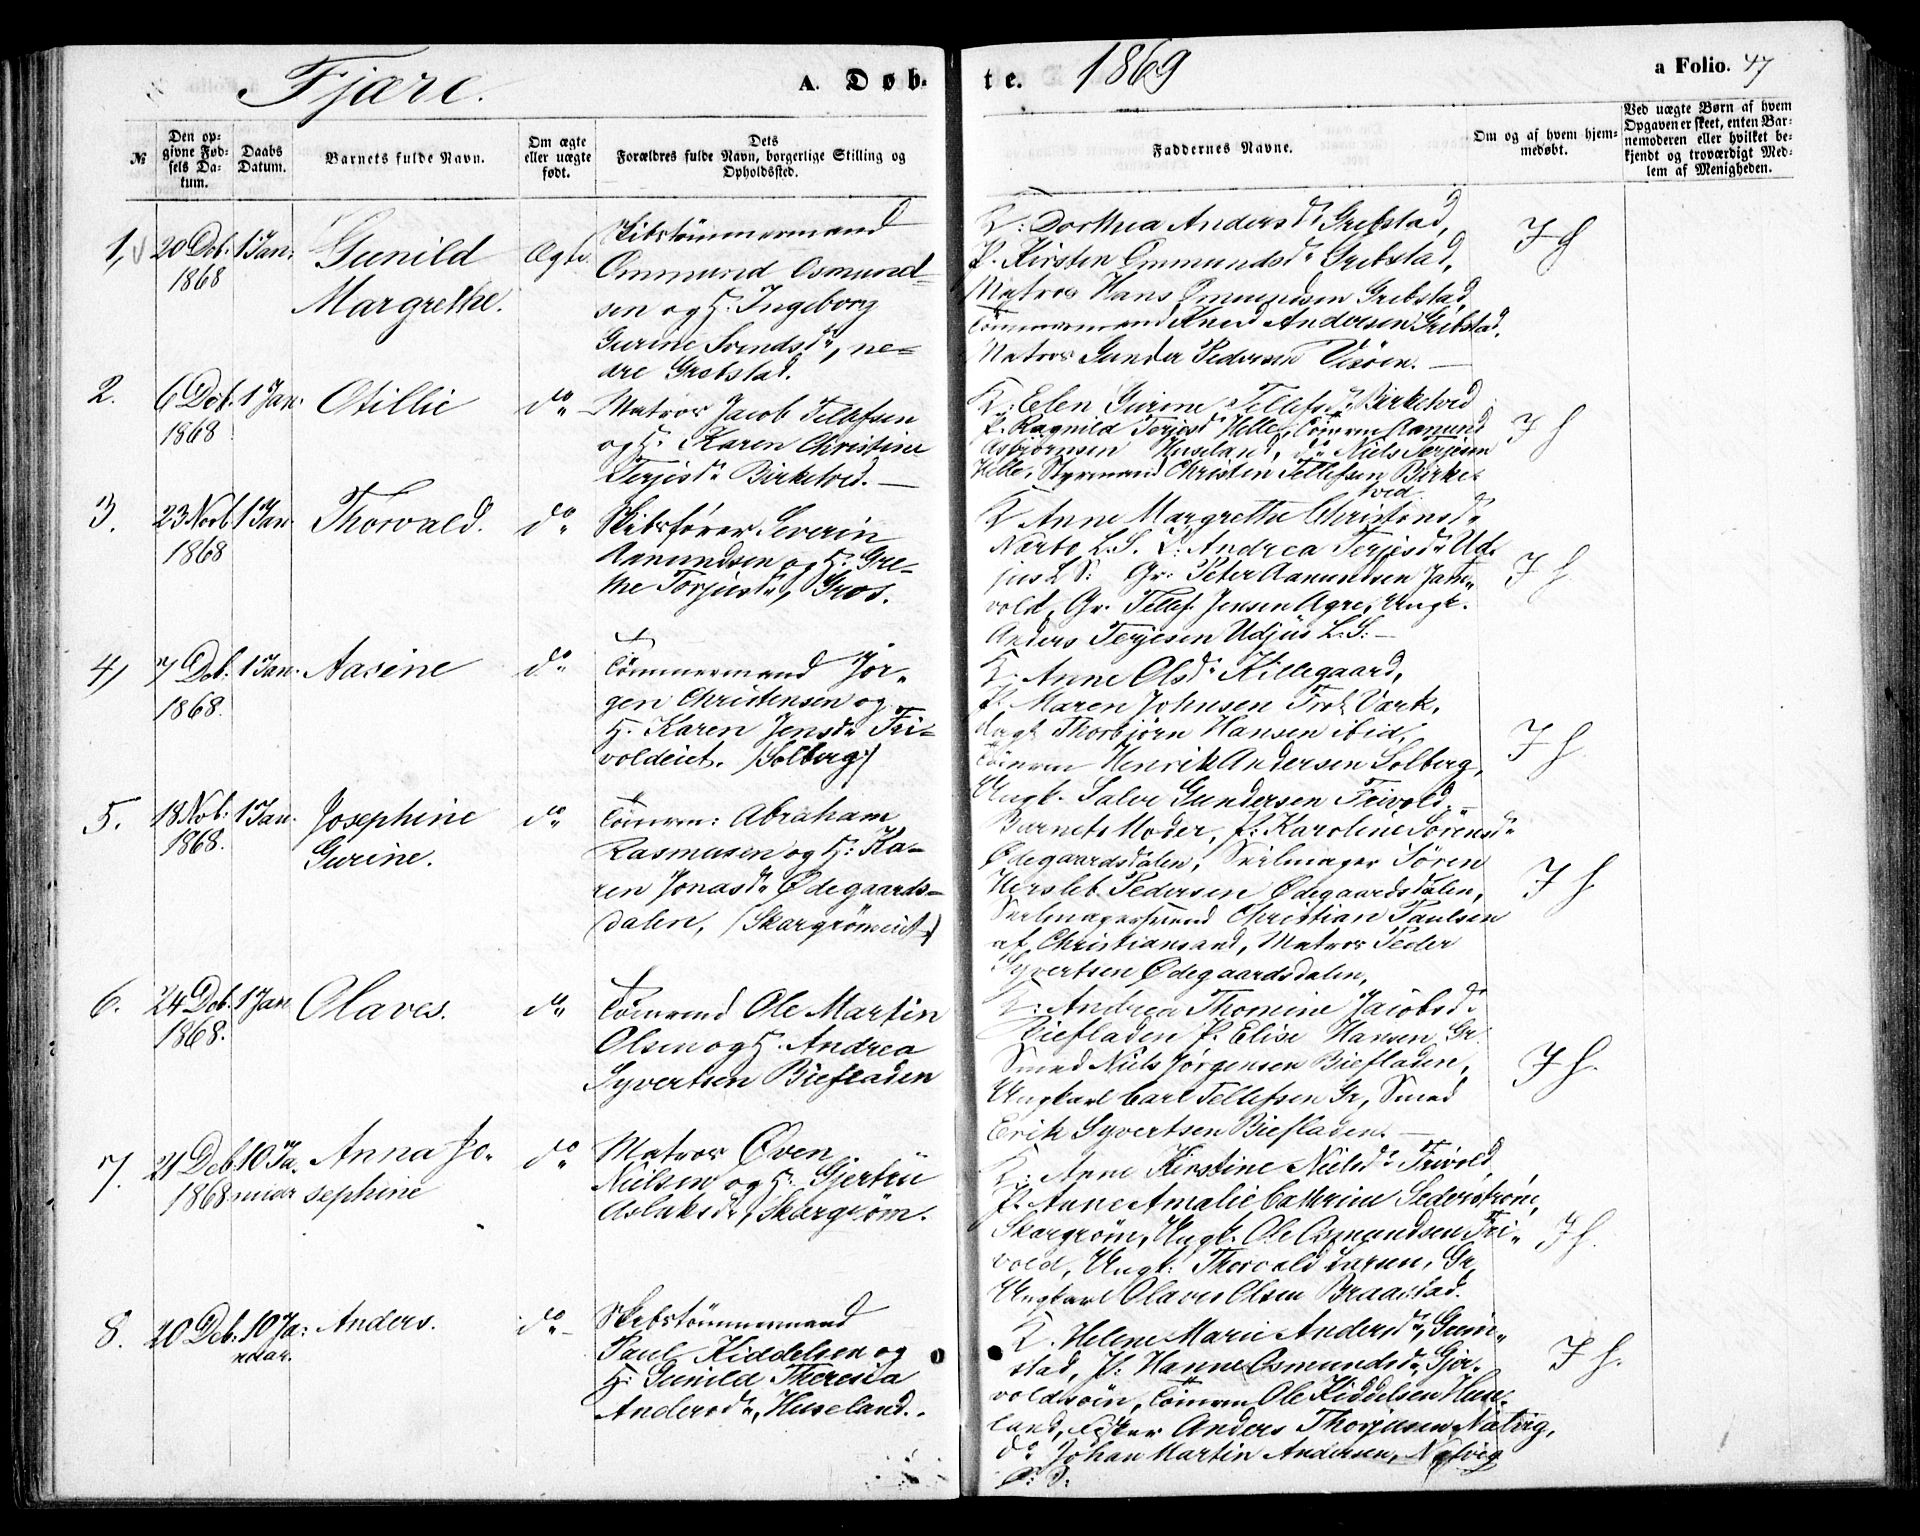 Fjære.
A. Døb-
te.
1869
a Folio. 47
№
Den op-
givne Fød-
sels Da-
tum.
Daabs
Datum.
Barnets fulde Navn.
Om ægte
eller uægte
født.
Dets
Forældres fulde Navn, borgerlige Stilling og
Opholdssted.
Faddernes Navne.
Om og af hvem hjem-
medøbt.
Ved uægte Børn af hvem
Opgaven er skeet, enten Bar-
nemoderen eller hvilket be-
kjendt og troværdigt Med-
lem af Menigheden.
1,
20 Deb.
1868
1 Jan:
Gunild
Margrethe.
Ægte
Skibstømmermand
Ommund Osmund-
sen og H. Ingeborg
Gurine Svendsdr, ne-
dre Grebstad.
K: Dorthea Andersdr Grebstad,
P. Kirsten Ommundsdr Grebstad,
Matros Hans Ommundsen Grebstad,
Tømmermand Knud Andersen Grebstad.
Matros Gunder Pedersen Viséen.
J h
2.
6 Deb.
1868
1 Jan.
Otillie
do
Matros Jacob Tellefsen
og H. Karen Christine
Terjesdr Birketved.
K: Elen Gurine Tellefsdr Birketved
P. Ragnild Terjesdr Helle, Tømrm Aamund
Asbjørnsen Huseland, do Niels Terjesen
Helle, Styrmand Christen Tellefsen Birke-
tved
J h
3.
23 Novb
1868
1 Jan.
Thorvald.
do
Skibsfører Severin
Aanundsen og H. Gre-
the Torjusdr, Gros.
K Anne Margrethe Christensdr
Nærbo L.S. P: Andrea Terjesdr Ud-
jus L S: Gr: Peter Aanundsen Jam-
vold, Gr. Tellef Jensen Agre, Ungk.
Anders Terjesen Udjus L.S:
J h
4,
7 Deb:
1868.
1 Jan.
Aasine
do
Tømmermand Jør-
gen Christensen og
H. Karen Jensdr Fri-
voldeiet. (Solberg)
K. Anne Olsdr Killegaard,
P. Maren Johnsen Vark,
Ungk Thorbjørn Hansen ibid,
Tømrm Henrik Andersen Solberg,
Ungk. Salve Gundersen Frivold.
J h
5.
18 Nob:
1868.
1 Jan.
Josephine
Gurine.
do
Tømrm: Abraham
Rasmusen og H: Ka-
ren Jonasdr Ødegaards-
dalen, (Skargrømeiet)
Barnets Moder, P: Karoline Sørensdr
Ødegaardsdalen, Seilmager Søren
Hersleb Pedersen Ødegaardsdalen,
Seilmagersvend Christian Paulsen
af Christiansand, Matros Peder
Syvertsen Ødegaardsdalen,
J h
6.
24 Deb.
1868.
1 Jan
Olaves.
do
Tømrmd Ole Martin
Olsen og H. Andrea
Syvertsen Biefladen
K. Andrea Thomine Jacobsdr
Biefladen P. Elise Hansen Gr.
Smed Niels Jørgensen Biefladen,
Ungkarl Carl Tellefsen Gr, Smed
Erik Syvertsen Biefladen.
J h.
7.
21 Deb
1868
10 Ja-
nuar
Anna Jo-
sephine
do
Matros Øven
Nielsen og H. Gjertru
Aslaksdr, Skargrøm.
K: Anne Kirstine Nielsdr Frivold
P. Anne Amalie Cathrine Sederstrøm,
Skargrøm, Ungk. Ole Osmundsen Fri-
vold, Ungk. Thorvald Larsen, Gr,
Ungkarl Olaves Olsen Braastad.
J h.
8.
20 Deb.
10 Ja-
nuar.
Anders.
do
Skibstømmermand
Paul Kiddelsen og
H: Gunild Theresia
Andersdr, Huseland.
K. Helene Marie Andersdr, Grim-
stad, P: Hanne Osmundsdr Gjer-
voldsøen, Tømrm Ole Kiddelsen Huse-
land, Fisker Anders Thorjusen Natvig,
do Johan Martin Andersen, Natvig
J h.